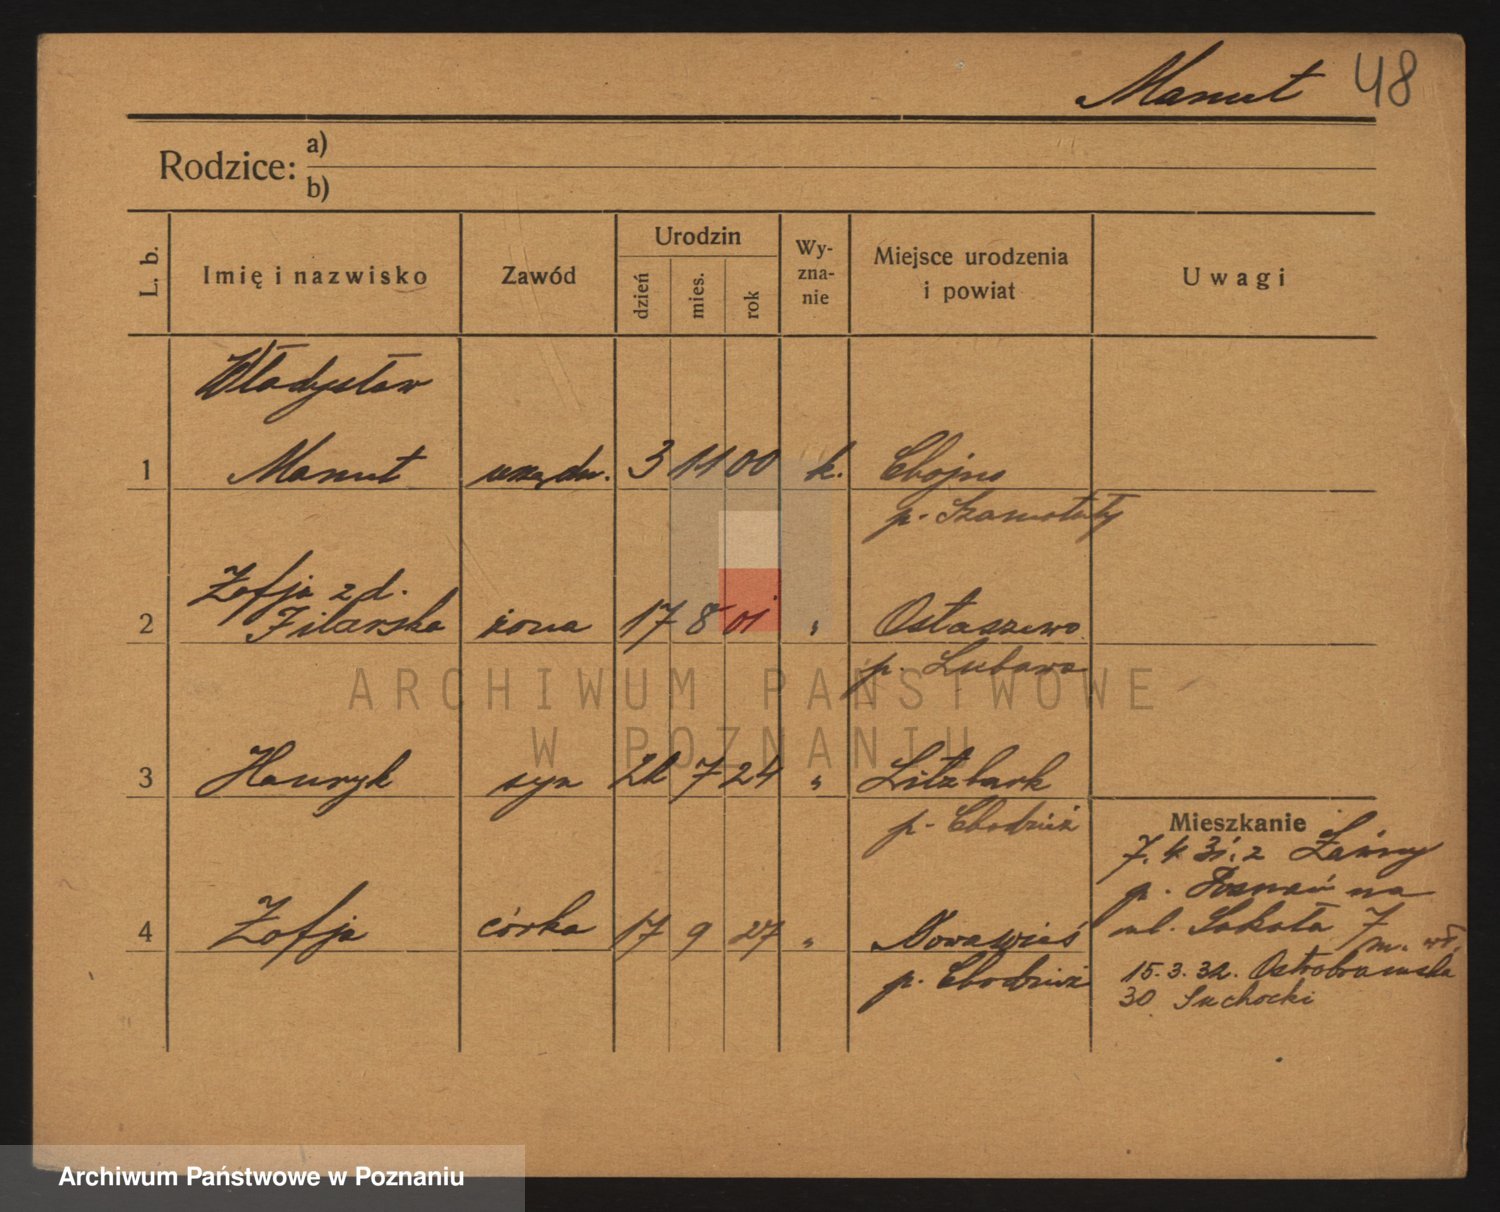 Manut 48
Rodzice: a)
b)
L. b. Imię i nazwisko Zawód Urodzin dzień mies. rok Wy-zna-nie Miejsce urodzenia i powiat Uwagi
Władysław
1 Manut urzędn. 3 11 00 k. Chojno
p. Szamotuły
Zofja z d.
2 Filarska żona 17 8 01 " Ostaszewo
p. Lubawa
3 Henryk syn 7 24 " Litzbark
p. Chodzież
Mieszkanie
7. 4 31. z
p. Poznań na
4 Zofja córka 17 9 27 " Nowawieś
p. Chodzież
ul. Sokoła 7
m. wł.
15.3.32. Ostrobramska
30 Suchocki
ARCHIWUM PAŃSTWOWE
W POZNANIU
Archiwum Państwowe w Poznaniu